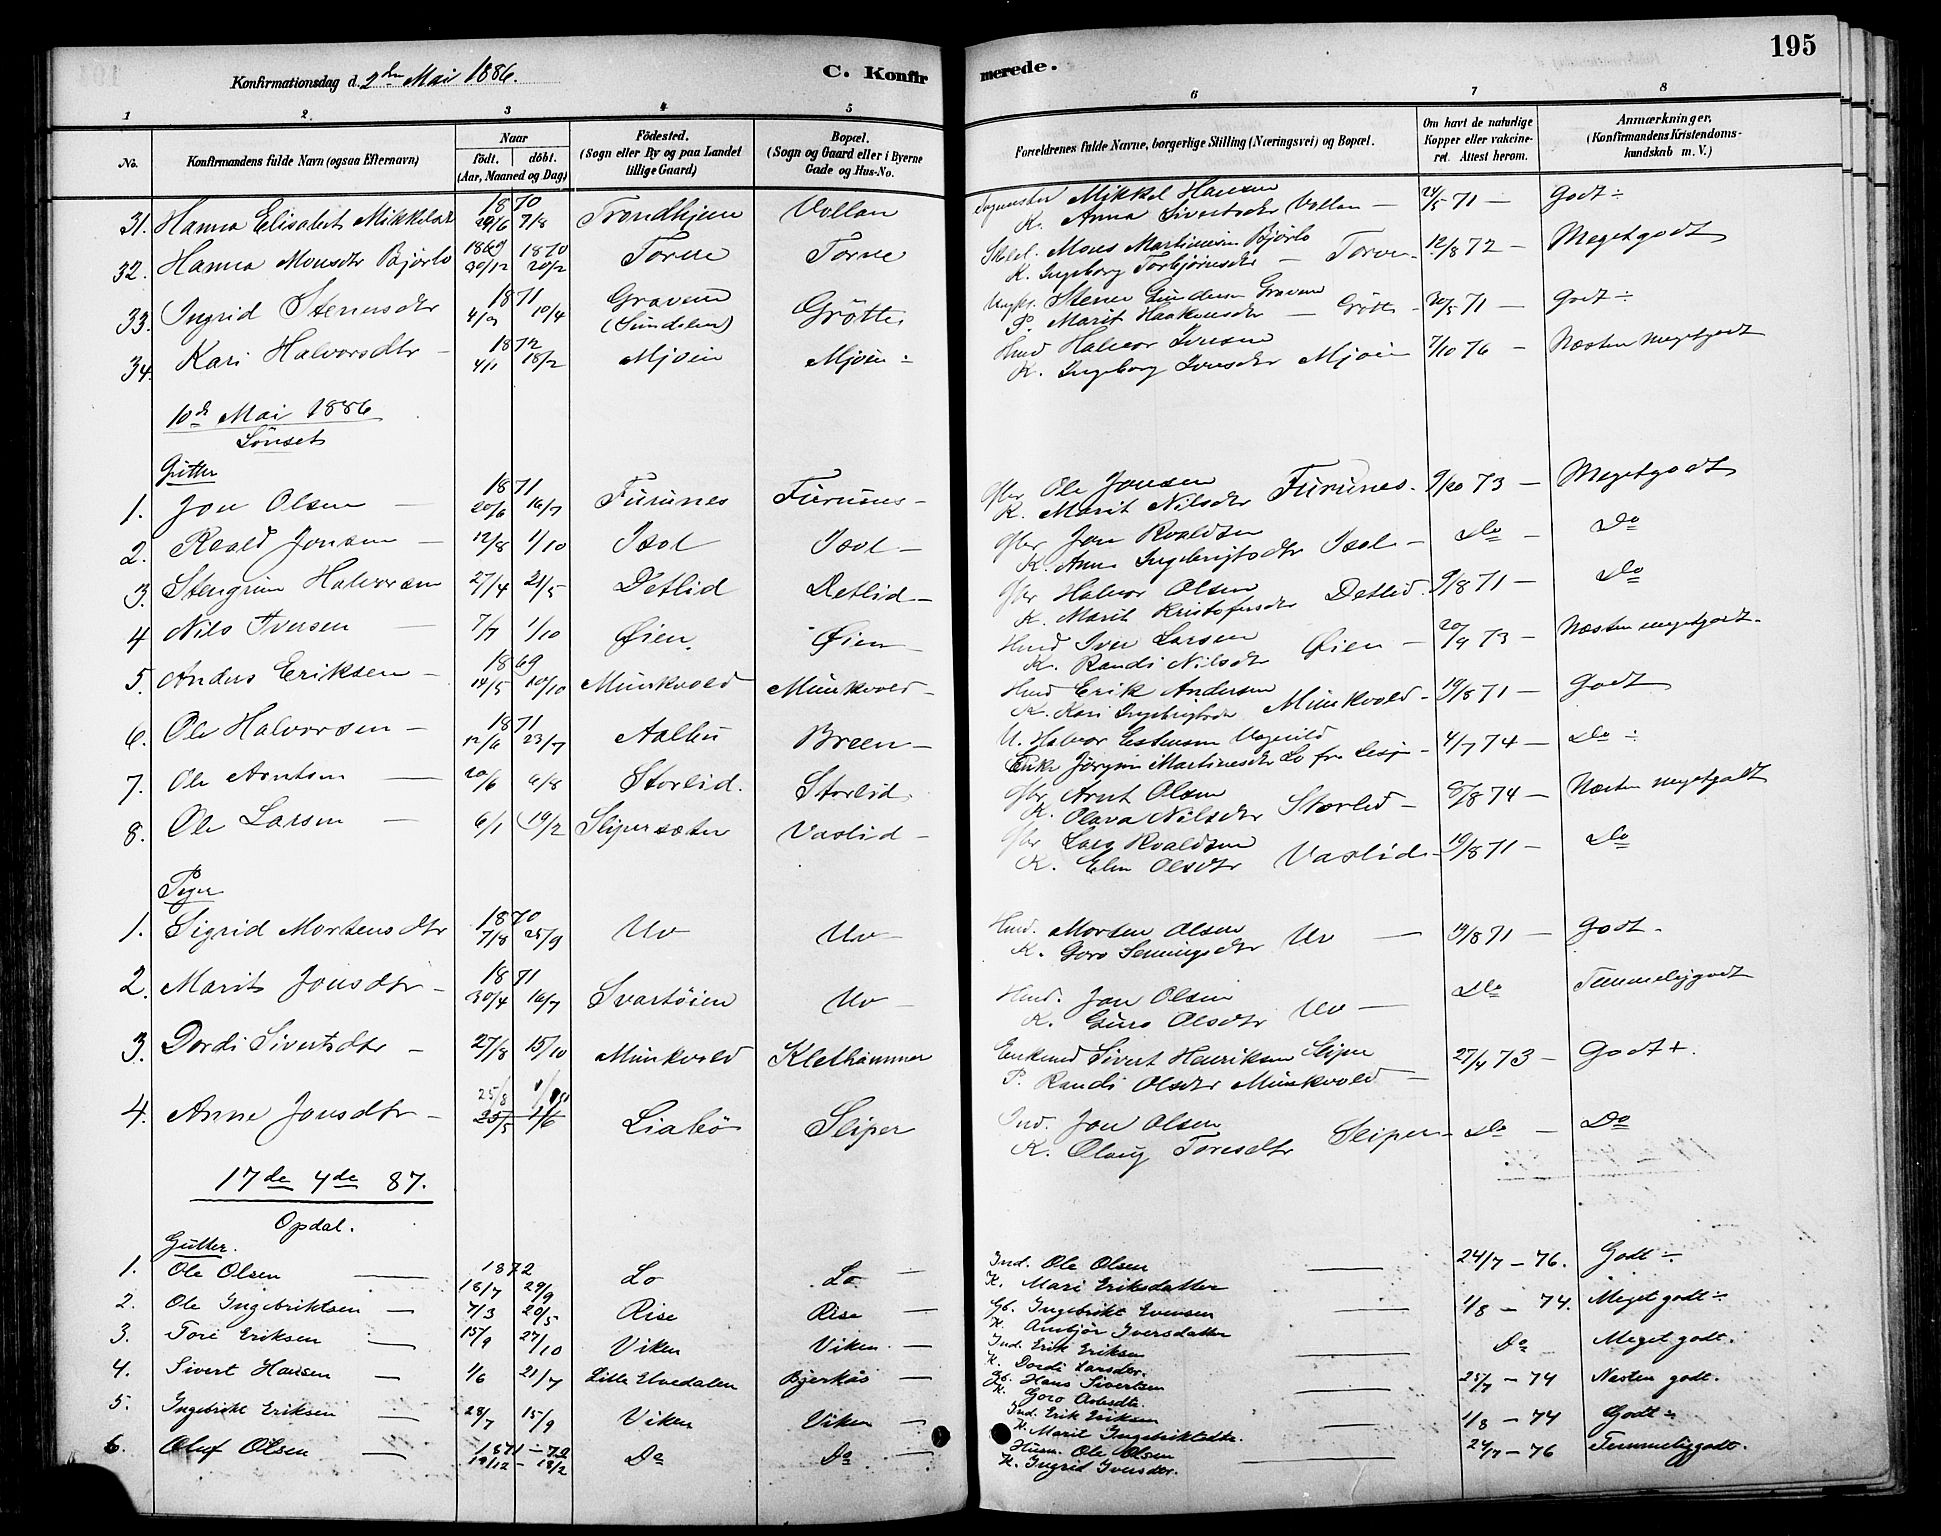 195
Konfirmationsdag d. 2den Mai 1886.
C. Konfirmerede.
1 2. 3 4 5 6 7 8
No. Konfirmandens fulde Navn (ogsaa Efternavn) Naar født. døbt. (Aar, Maaned og Dag) Fødested. (Sogn eller By og paa Landet tillige Gaard) Bopæl. (Sogn og Gaard eller i Byerne Gade og Hus-No. Forældrenes fulde Navne, borgerlige Stilling (Næringsvei) og Bopæl. Om havt de naturlige Kopper eller vakcineret. Attest herom. Anmærkninger. (Konfirmandens Kristendomskundskab m. V.)
1870
31. Hanna Elisabet Mikkelsdtr 29/6 7/8 Trondhjem Vollan Mikkel Hansen
K. Anna Sivertsdtr Vollan – 24/5 71 – Godt ÷
1869 1870
32. Hanna Monsdtr Bjørlo 30/12 20/2 Torve Torve Mons Martinsen Bjørlo
K. Ingeborg Torbjørnsdtr – Torve 12/8 72 – Megetgodt
1871
33. Ingrid Stenersdtr 4/3 10/4 Gravem (Sundalen) Grøtte Ungk. Stener Gundersen Gravem
P. Marit Haakensdtr – Grøtte 20/5 71 – Godt ÷
1872
34. Kari Halvorsdtr – 4/1 18/2 Mjøen Mjøen – Hmd Halvor Iversen
K. Ingeborg Iversdtr Mjøen 7/10 76 – Næsten megetgodt
10de Mai 1886
Lønset
Gutter
1871
1. Jon Olsen – 20/6 16/7 Furunes Furunes – Gbr Ole Jonsen
K. Marit Nilsdtr Furunes – 9/10 73 – Megetgodt
2. Roald Jonsen – 12/8 1/10 Isol Isol – Gbr Jon Roaldsen
K. Anne Ingebrigtsdtr Isol – Do – Do
3. Stengrim Halvorsen 27/4 21/5 Detlid Detlid – Gbr Halvor Olsen
K. Marit Kristofersdtr Detlid 9/8 71 – Do
4 Nils Iversen – 7/7 1/10 Øien Øien – Hmd Iver Larsen
K. Randi Nilsdtr Øien – 20/9 73 – Næsten megetgodt.
1869
5. Anders Eriksen – 14/5 10/10 Munkvold Munkvold – Hmd Erik Andersen
K. Kari Ingebrigtsdtr Munkvold – 19/8 71 – Godt
1871
6. Ole Halvorsen – 12/6 23/7 Aalbu Breen – U. Halvor Estensen Vognild
Enke Jørgine Martinusdtr Lo fra Lesje – 4/7 74 – Do ÷
7. Ole Arntsen – 20/6 6/8 Storlid. Storlid Gbr Arnt Olsen
K. Olava Nilsdtr Storlid – 8/8 74 – Næsten megetgodt
8. Ole Larsen – 6/1 19/2 Slipersæter Vaslid – Gbr Lars Roaldsen
K. Elen Olsdtr Vaslid – 19/8 71 – Do
Piger
1870
1. Sigrid Mortensdtr 7/8 25/9 Uv Uv – Hmd. Morten Olsen
K. Goro Semingsdtr Uv – 19/8 71 – Godt –
1871
2. Marit Jonsdtr – 30/4 16/7 Svartøien Uv Hmd. Jon Olsen
K. Guro Olsdtr Uv – Do Temmeliggodt
3. Dordi Sivertsdtr – 27/8 15/10 Munkvold Klethammer Enkemd Sivert Henriksen Sliper
P. Randi Olsdtr Munkvold – 27/4 73 – Godt +.
25/8
4. Anne Jonsdtr – 25/5 1/6 Liabø Sliper Ind. Jon Olsen
K. Olaug Toresdtr Sliper – Do – Do
17de 4de 87.
Opdal.
Gutter.
1872
1. Ole Olsen – 18/7 29/9 Lo Lo – Ind. Ole Olsen
K. Mari Eriksdatter – 24/7 – 76. Godt ÷
2. Ole Ingebriktsen – 7/3 20/5 Rise Rise Gb. Ingebrikt Evensen
K. Ambjør Iversdatter – 1/8 – 74. Meget godt ÷
3. Tore Eriksen – 15/9 27/10 Viken Viken – Ind. Erik Eriksen
K. Dordi Larsdtr. – Do Meget godt.
4. Sivert Hansen – 1/6 21/7 Lille Elvedalen Bjerkås – Gb. Hans Sivertsen
K. Goro – 25/7 – 74 Næsten godt.
5. Ingebrikt Eriksen – 28/7 15/9 Viken Viken – Ind. Erik Eriksen
K. Marit Ingebriktsdtr. – 1/8 – 74 Godt ÷
1871 – 72
6. Oluf Olsen – 19/12 – 18/2 Do Do – Husm. Ole Olsen
K. Ingrid Iversdtr. – 24/7 – 76 Temmeliggodt.